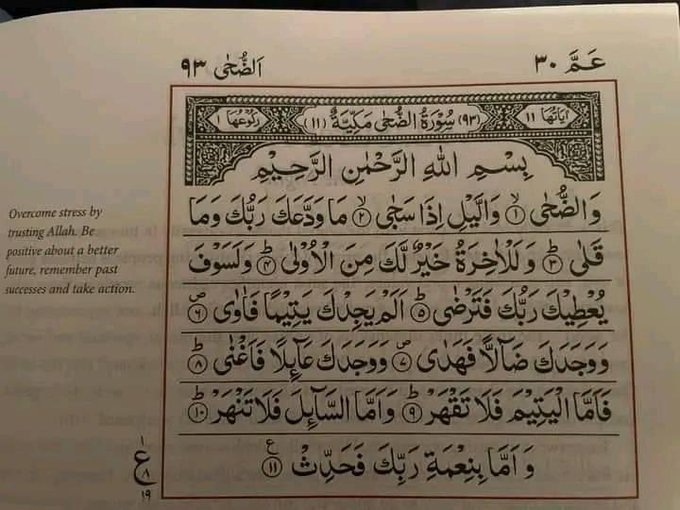 عَمَّ ٣٠
اَلضُّحٰى ٩٣
اٰيَاتُهَا ١١
(٩٣) سُوْرَةُ الضُّحٰى مَكِّيَّةٌ (١١)
رُكُوْعُهَا ١
بِسْمِ اللّٰهِ الرَّحْمٰنِ الرَّحِيْمِ
وَالضُّحٰى ۙ‏﴿۱﴾ وَالَّيْلِ اِذَا سَجٰى ۙ‏﴿۲﴾ مَا وَدَّعَكَ رَبُّكَ وَمَا
قَلٰى ؕ‏﴿۳﴾ وَلَلْاٰخِرَةُ خَيْرٌ لَّكَ مِنَ الْاُوْلٰى ؕ‏﴿۴﴾ وَلَسَوْفَ
يُعْطِيْكَ رَبُّكَ فَتَرْضٰى ؕ‏﴿۵﴾ اَلَمْ يَجِدْكَ يَتِيْمًا فَاٰوٰى ۪‏﴿۶﴾
وَوَجَدَكَ ضَآلًّا فَهَدٰى ۪‏﴿۷﴾ وَوَجَدَكَ عَآئِلًا فَاَغْنٰى ؕ‏﴿۸﴾
فَاَمَّا الْيَتِيْمَ فَلَا تَقْهَرْ ؕ‏﴿۹﴾ وَاَمَّا السَّآئِلَ فَلَا تَنْهَرْ ؕ‏﴿۱۰﴾
وَاَمَّا بِنِعْمَةِ رَبِّكَ فَحَدِّثْ ﴿۱۱﴾ ع
ع
٨
١٩
Overcome stress by
trusting Allah. Be
positive about a better
future, remember past
successes and take action.